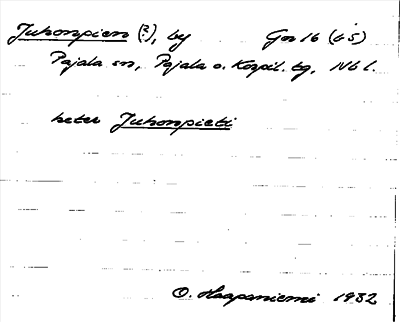 Juhonpieni (?), by Gns 16 (65)
Pajala sn, Pajala o. Korpil. tg, Nb l.
heter Juhonpieti
O. Haapaniemi 1932